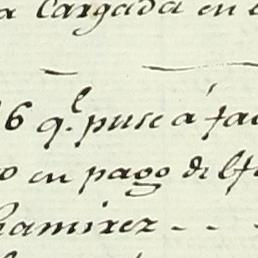 a Cargada en
6 q.e puse á fa
o en pago del f
Ramirez - - -